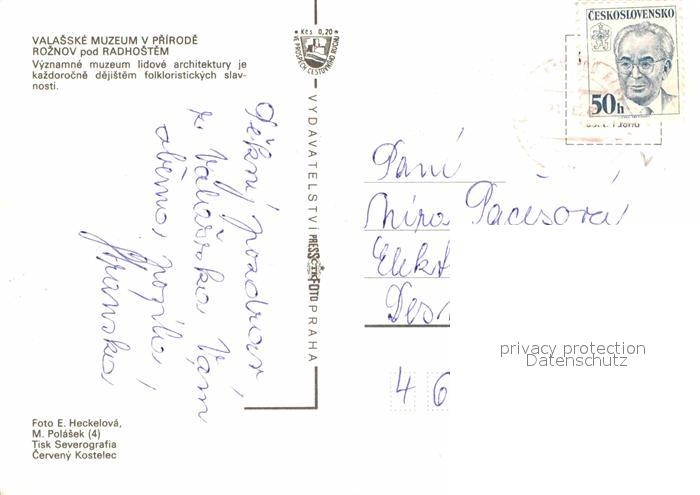 VALAŠSKÉ MUZEUM V PŘÍRODĚ
ROŽNOV pod RADHOŠTĚM
Významné muzeum lidové architektury je
každoročně dějištěm folkloristických slav-
ností.
Kčs 0,20
VE PROSPĚCH CESTOVNÍHO RUCHU
ČESKOSLOVENSKO
50h
VYDAVATELSTVÍ PRESSFOTO PRAHA
Pěkný pozdrav
z Valašska Vám
všěma posílá
Paní
Míra Pacesová
Elekt
Des
4 6
privacy protection
Datenschutz
Foto E. Heckelová,
M. Polášek (4)
Tisk Severografia
Červený Kostelec